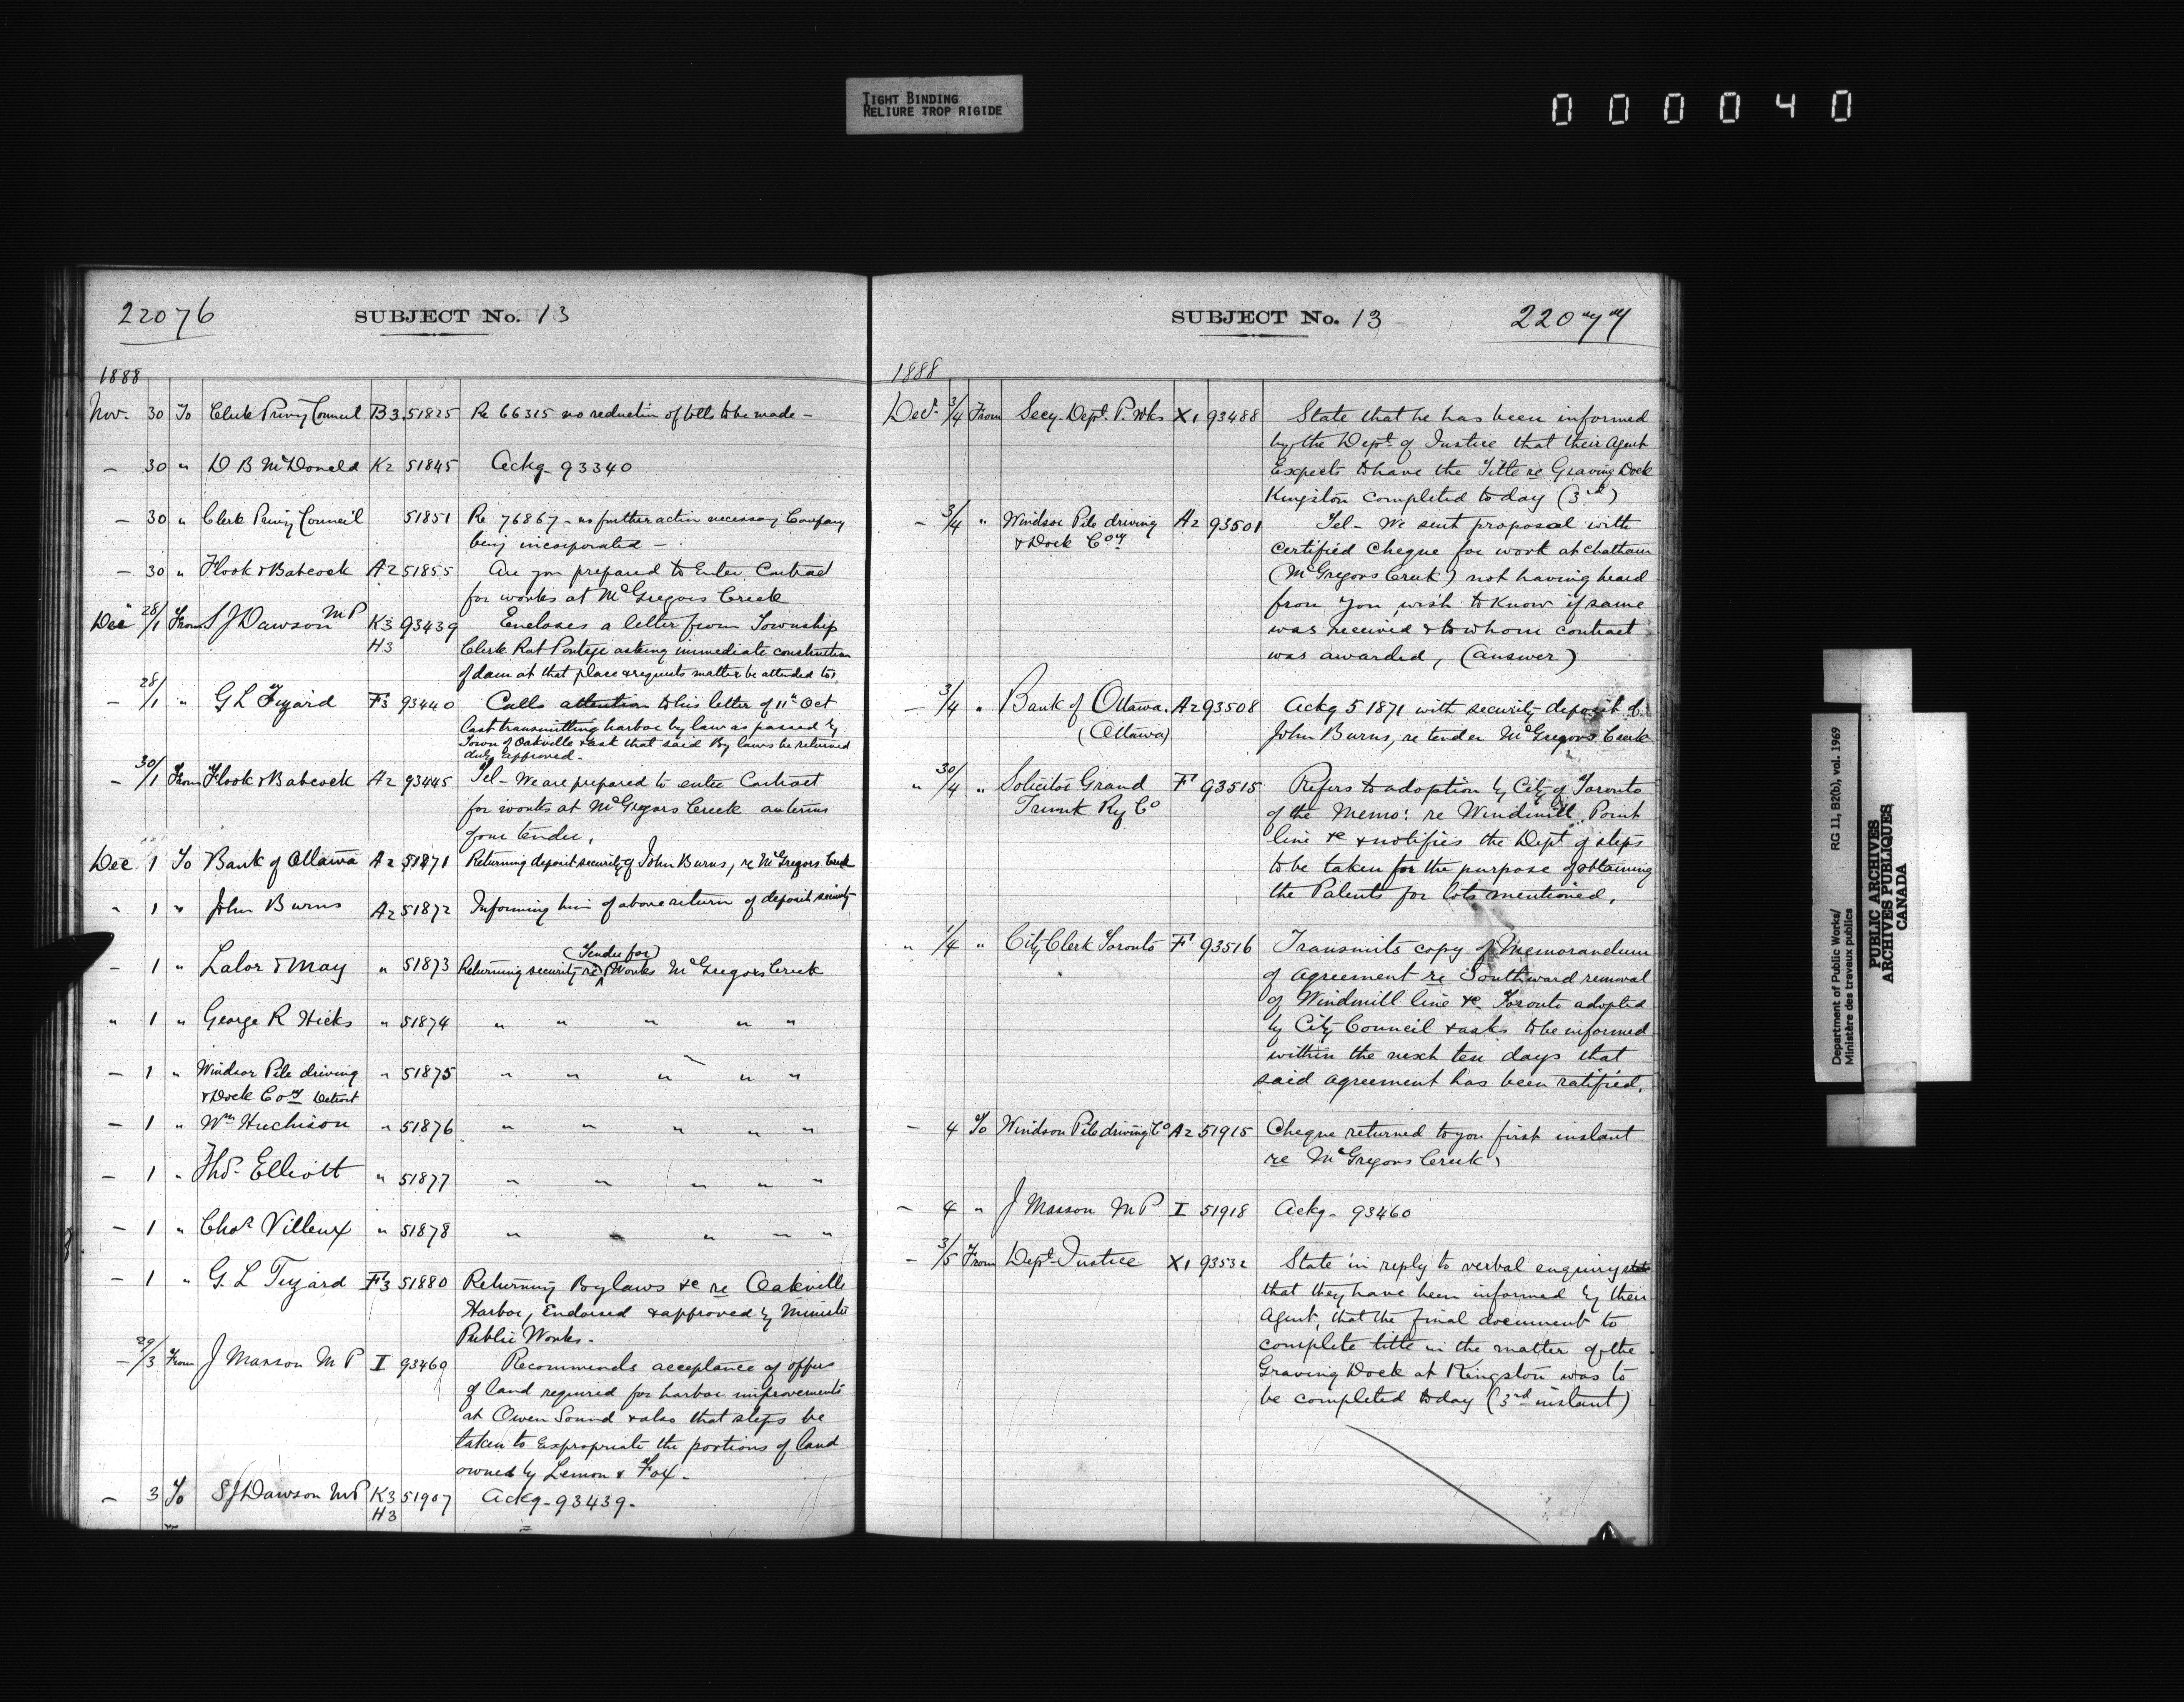 TIGHT BINDING
RELIURE TROP RIGIDE
000040
22076
SUBJECT No. 13
1888
Nov. 30 To Clerk Privy Council B3 51825 Re 66315 no reduction of tolls to be made -
- 30 " D B McDonald K2 51845 Ackg - 93340
- 30 " Clerk Privy Council 51851 Re 76867 - no further action necessary Company
being incorporated -
- 30 " Hook & Babcock A2 51855 Are you prepared to Enter Contract
for works at McGregors Creek
Dec 28/1 From S J Dawson MP K3 93439 Encloses a letter from Township
H3 Clerk Rat Portage asking immediate construction
of dam at that place & requests matter be attended to.
- 28/1 " G L Tizard F3 93440 Calls attention to his letter of 11th Oct
last transmitting harbor by law as passed by
Town of Oakville & ask that said By laws be returned
duly approved -
- 30/1 From Hook & Babcock A2 93445 Tel - We are prepared to enter Contract
for works at McGregors Creek on terms
of our tender,
Dec 1 To Bank of Ottawa A2 51871 Returning deposit security of John Burns, re McGregors Creek
" 1 " John Burns A2 51872 Informing him of above return of deposit security
(Tender for)
- 1 " Lalor & May " 51873 Returning security re Works McGregors Creek
" 1 " George R Hicks " 51874 " " " " "
- 1 " Windsor Pile driving " 51875 " " " " "
& Dock Coy Detroit
- 1 " Wm Huchison " 51876 " " " " "
- 1 " Thos. Elliott " 51877 " " " " "
- 1 " Chas Villeux " 51878 " " " " "
- 1 " G. L Tizard F3 51880 Returning Bylaws &c re Oakville
Harbor, Endorsed & approved by Minister
Public Works -
- 29/3 From J Masson M P I 93460 Recommends acceptance of offers
of land required for harbor improvements
at Owen Sound & also that steps be
taken to Expropriate the portions of land
owned by Lemon & Fox -
- 3 To S J Dawson M P K3 51907 Ackg - 93439 -
H3
SUBJECT No. 13 -
22077
1888
Decr. 3/4 From Secy. Dept. P. Wks X1 93488 State that he has been informed
by the Dept. of Justice that their Agent
Expects to have the Title re Graving Dock
Kingston completed to day (3rd)
- 3/4 " Windsor Pile driving A2 93501 Tel - We sent proposal with
& Dock Coy certified Cheque for work at Chatham
(McGregors Creek) not having heard
from you wish to know if same
was received & to whom contract
was awarded, (answer)
- 3/4 " Bank of Ottawa. A2 93508 Ackg 51871 with security deposit of
(Ottawa) John Burns, re tender McGregors Creek
" 30/4 " Solicitor Grand F1 93515 Refers to adoption by City of Toronto
Trunk Ry Co of the Memo: re Windmill Point
line &c & notifies the Dept of steps
to be taken for the purpose of obtaining
the Patents for lots mentioned,
" 1/4 " City Clerk Toronto F1 93516 Transmits copy of Memorandum
of Agreement re Southward removal
of Windmill line &c Toronto adopted
by City Council & asks to be informed
within the next ten days that
said agreement has been ratified,
- 4 To Windsor Pile driving Co A2 51915 Cheque returned to you first instant
re McGregors Creek,
- 4 " J Masson M P I 51918 Ackg - 93460
- 3/5 From Dept Justice X1 93532 State in reply to verbal enquiry
that they have been informed by their
Agent, that the final document to
complete title in the matter of the
Graving Dock at Kingston was to
be completed to day (3rd instant)
Department of Public Works/
Ministère des travaux publics
RG 11, B2(b), vol. 1969
PUBLIC ARCHIVES
ARCHIVES PUBLIQUES
CANADA